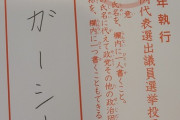 年執行
代表選出議員選挙投
欄内に一人書くこと。
氏名に代えて政党その他の政治団
を、欄内に書くこともできる
ガーシ